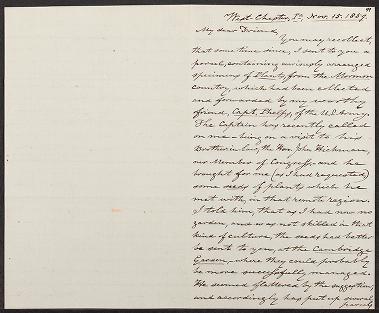 91
West-Chester, Pa. Nov. 15. 1859.
My dear Friend,
You may recollect,
that some time since, I sent to you a
parcel, containing curiously arranged
specimens of Plants, from the Mormon
country, which had been collected
and forwarded by my worthy
friend, Capt. Phelps, of the U.S. Army.
The Captain has recently called
on me – being on a visit to his
Brother in law, the Hon. John Hickman,
our Member of Congress, and he
brought for me (as I had requested)
some seeds of plants which he
met with, in that remote region.
I told him, that as I had now no
garden, and was not skilled in that
kind of culture, the seeds had better
be sent to you, at the Cambridge
Garden, where they could probably
be more successfully managed.
He seemed flattered by the suggestion,
and accordingly has put up several
parcels